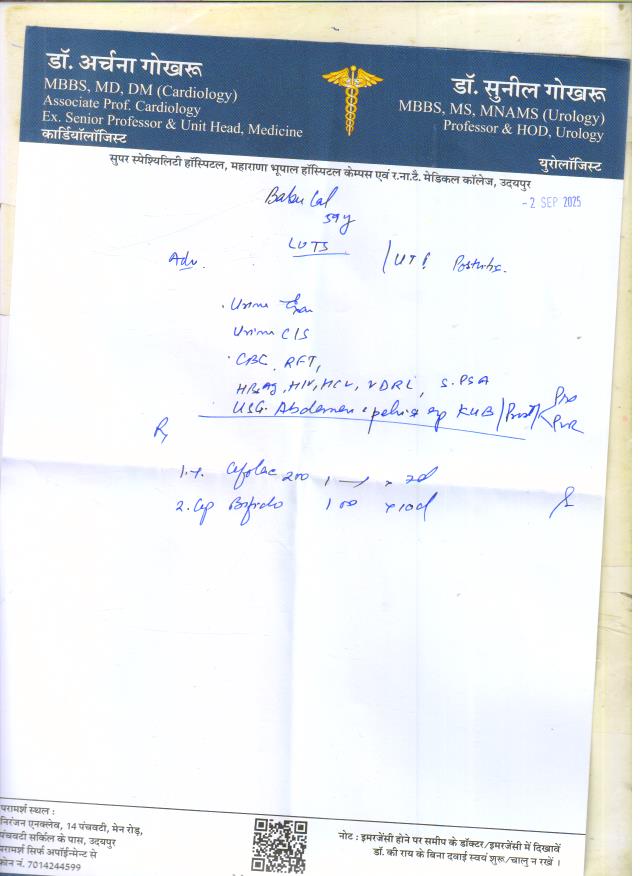 डॉ. अर्चना गोखरू
MBBS, MD, DM (Cardiology)
Associate Prof. Cardiology
Ex. Senior Professor & Unit Head, Medicine
कार्डियॉलॉजिस्ट
डॉ. सुनील गोखरू
MBBS, MS, MNAMS (Urology)
Professor & HOD, Urology
युरोलॉजिस्ट
सुपर स्पेश्यिलिटी हॉस्पिटल, महाराणा भूपाल हॉस्पिटल केम्पस एवं र.ना.टै. मेडिकल कॉलेज, उदयपुर
- 2 SEP 2025
Babu Lal
59y
LUTS
Adv.
/UTI
. Urine
Urine C/S
. CBC, RFT,
HBsAg, HIV, HCV, VDRL, S. PSA
USG. Abdomen pelvis KUB / Prost / Pre
PVR
Rx
1. T. 200 1
2. Cap Bifido 1 x 10d
परामर्श स्थल :
निरंजन एनक्लेव, 14 पंचवटी, मेन रोड़,
पंचवटी सर्किल के पास, उदयपुर
परामर्श सिर्फ अपॉईन्मेन्ट से
फोन नं. 7014244599
नोट : इमरजेंसी होने पर समीप के डॉक्टर/इमरजेंसी में दिखावें
डॉ. की राय के बिना दवाई स्वयं शुरू/चालु न रखें ।